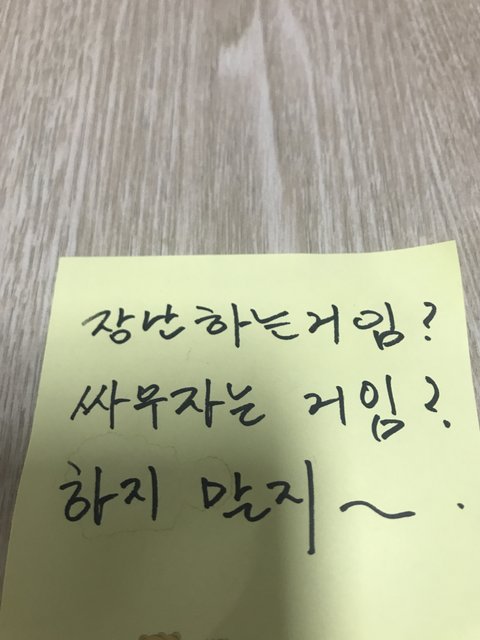 장난하는거임?
싸무자는 거임?
하지 말지~.